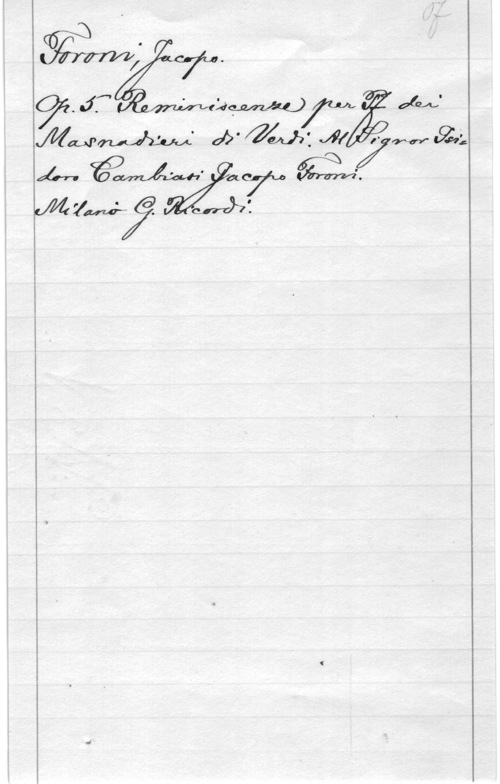 Pf
Foroni, Jacopo.
Op. 5. Reminiscenze per Pf dei
Masnadieri di Verdi. Al Signor Isi=
doro Cambiasi Jacopo Foroni.
Milano G. Ricordi.